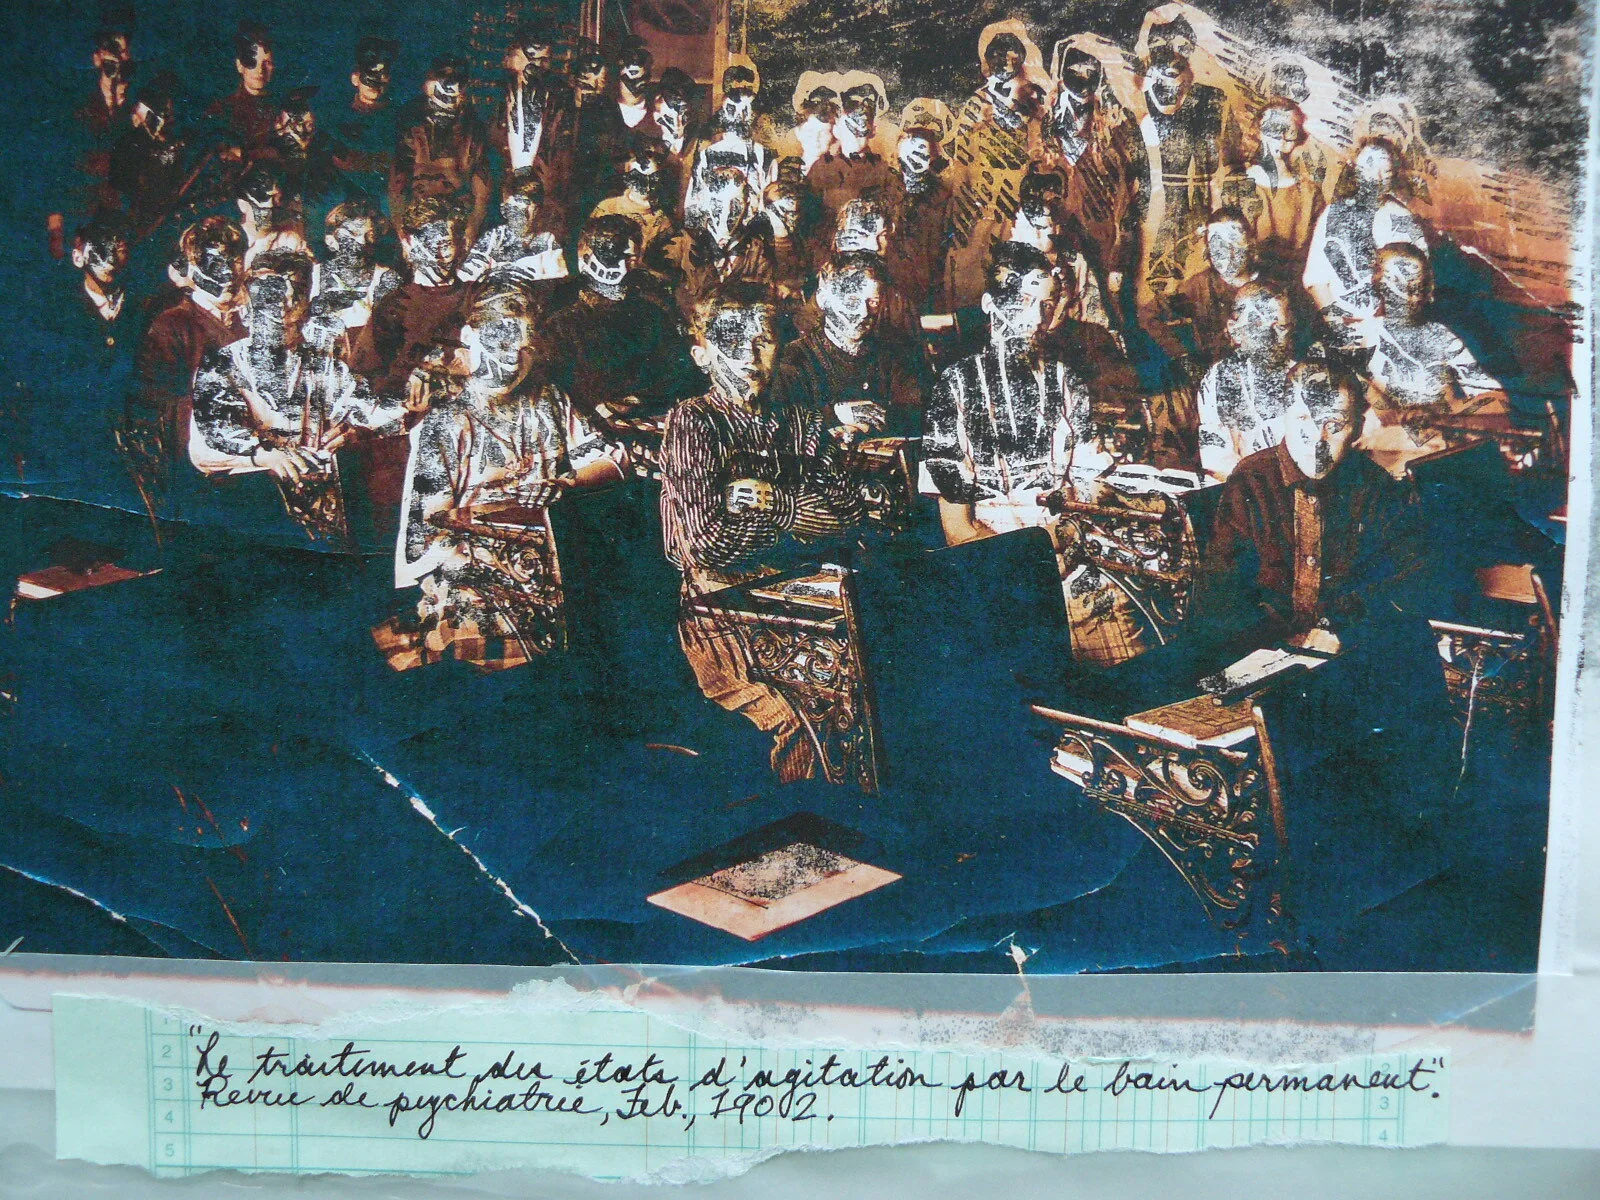 "Le traitement des états d'agitation par le bain permanent".
Revue de psychiatrie, Feb., 1902.
1
2
3
4
5
3
4